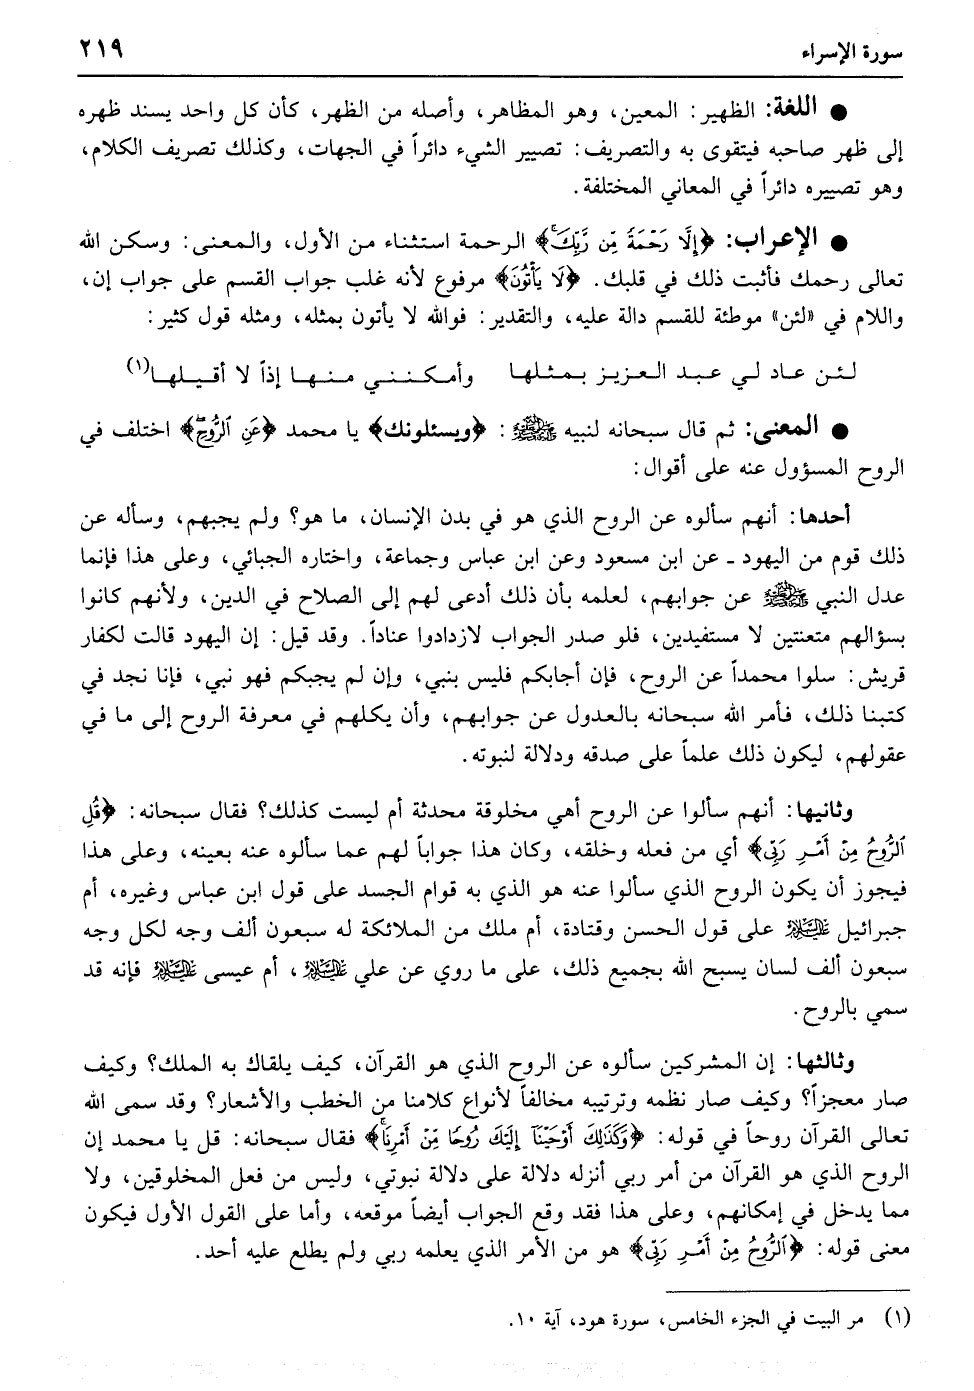 سورة الإسراء ٢١٩
● اللغة: الظهير: المعين، وهو المظاهر، وأصله من الظهر، كأن كل واحد يسند ظهره
إلى ظهر صاحبه فيتقوى به والتصريف: تصيير الشيء دائراً في الجهات، وكذلك تصريف الكلام،
وهو تصييره دائراً في المعاني المختلفة.
● الإعراب: ﴿إِلَّا رَحْمَةً مِّن رَّبِّكَ﴾ الرحمة استثناء من الأول، والمعنى: وسكن الله
تعالى رحمك فأثبت ذلك في قلبك. ﴿لَا يَأْتُونَ﴾ مرفوع لأنه غلب جواب القسم على جواب إن،
واللام في «لئن» موطئة للقسم دالة عليه، والتقدير: فوالله لا يأتون بمثله، ومثله قول كثير:
لئن عاد لي عبد العزيز بمثلها وأمكنني منها إذاً لا أقيلها(١)
● المعنى: ثم قال سبحانه لنبيه ﷺ: ﴿ويسئلونك﴾ يا محمد ﴿عَنِ ٱلرُّوحِۖ﴾ اختلف في
الروح المسؤول عنه على أقوال:
أحدها: أنهم سألوه عن الروح الذي هو في بدن الإنسان، ما هو؟ ولم يجبهم، وسأله عن
ذلك قوم من اليهود ـ عن ابن مسعود وعن ابن عباس وجماعة، واختاره الجبائي، وعلى هذا فإنما
عدل النبي ﷺ عن جوابهم، لعلمه بأن ذلك أدعى لهم إلى الصلاح في الدين، ولأنهم كانوا
بسؤالهم متعنتين لا مستفيدين، فلو صدر الجواب لازدادوا عناداً. وقد قيل: إن اليهود قالت لكفار
قريش: سلوا محمداً عن الروح، فإن أجابكم فليس بنبي، وإن لم يجبكم فهو نبي، فإنا نجد في
كتبنا ذلك، فأمر الله سبحانه بالعدول عن جوابهم، وأن يكلهم في معرفة الروح إلى ما في
عقولهم، ليكون ذلك علماً على صدقه ودلالة لنبوته.
وثانيها: أنهم سألوا عن الروح أهي مخلوقة محدثة أم ليست كذلك؟ فقال سبحانه: ﴿قُلِ
ٱلرُّوحُ مِنْ أَمْرِ رَبِّى﴾ أي من فعله وخلقه، وكان هذا جواباً لهم عما سألوه عنه بعينه، وعلى هذا
فيجوز أن يكون الروح الذي سألوا عنه هو الذي به قوام الجسد على قول ابن عباس وغيره، أم
جبرائيل عليه السلام على قول الحسن وقتادة، أم ملك من الملائكة له سبعون ألف وجه لكل وجه
سبعون ألف لسان يسبح الله بجميع ذلك، على ما روي عن علي عليه السلام، أم عيسى عليه السلام فإنه قد
سمي بالروح.
وثالثها: إن المشركين سألوه عن الروح الذي هو القرآن، كيف يلقاك به الملك؟ وكيف
صار معجزاً؟ وكيف صار نظمه وترتيبه مخالفاً لأنواع كلامنا من الخطب والأشعار؟ وقد سمى الله
تعالى القرآن روحاً في قوله: ﴿وَكَذَٰلِكَ أَوْحَيْنَآ إِلَيْكَ رُوحًا مِّنْ أَمْرِنَاۚ﴾ فقال سبحانه: قل يا محمد إن
الروح الذي هو القرآن من أمر ربي أنزله دلالة على دلالة نبوتي، وليس من فعل المخلوقين، ولا
مما يدخل في إمكانهم، وعلى هذا فقد وقع الجواب أيضاً موقعه، وأما على القول الأول فيكون
معنى قوله: ﴿ٱلرُّوحُ مِنْ أَمْرِ رَبِّى﴾ هو من الأمر الذي يعلمه ربي ولم يطلع عليه أحد.
(١) مر البيت في الجزء الخامس، سورة هود، آية ١٠.